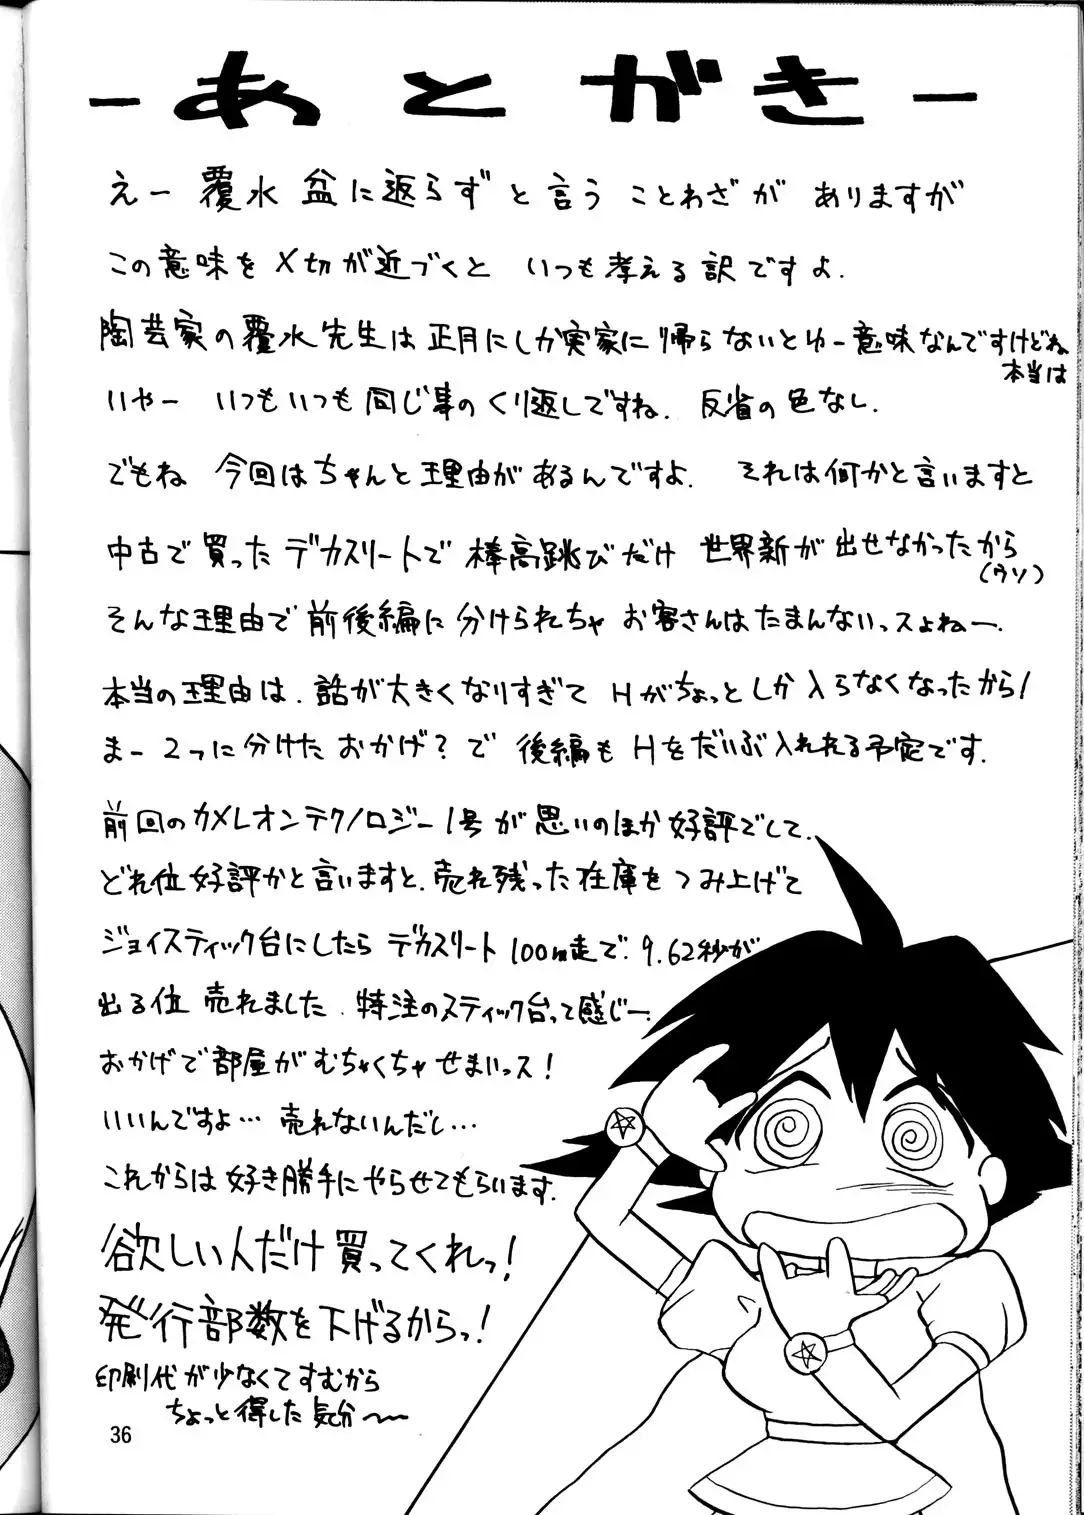 -あとがき-
えー 覆水 盆に返らず と言う ことわざが ありますが
この意味を〆切が近づくと いつも考える訳ですよ.
陶芸家の覆水先生は正月にしか実家に帰らないとゆー意味なんですけどね
本当は
いやー いつもいつも同じ事のくり返しですね. 反省の色なし.
でもね 今回はちゃんと理由があるんですよ. それは何かと言いますと
中古で買ったデカスリートで棒高跳びだけ 世界新が出せなかったから
(ウソ)
そんな理由で前後編に分けられちゃ お客さんはたまんないっスよねー.
本当の理由は、話が大きくなりすぎて Hがちょっとしか入らなくなったから!
まー 2つに分けた おかげ?で 後編もHをだいぶ入れれる予定です.
前回のカメレオンテクノロジー1号が思いのほか好評でして、
どれ位好評かと言いますと、売れ残った在庫をつみ上げて
ジョイスティック台にしたらデカスリート100m走で、9.62秒が
出る位 売れました、特注のスティック台って感じー.
おかげで部屋がむちゃくちゃせまいっス!
いいんですよ… 売れないんだし…
これからは好き勝手にやらせてもらいます.
欲しい人だけ買ってくれっ!
発行部数を下げるからっ!
印刷代が少なくてすむから
ちょっと得した気分〜
36